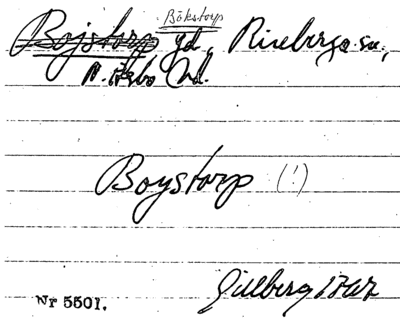 Bökstorp
Bojstorp gd, Riseberga sn,
N. Åsbo hd.
Boystorp (!)
Gillberg 1767
Nr 5501.